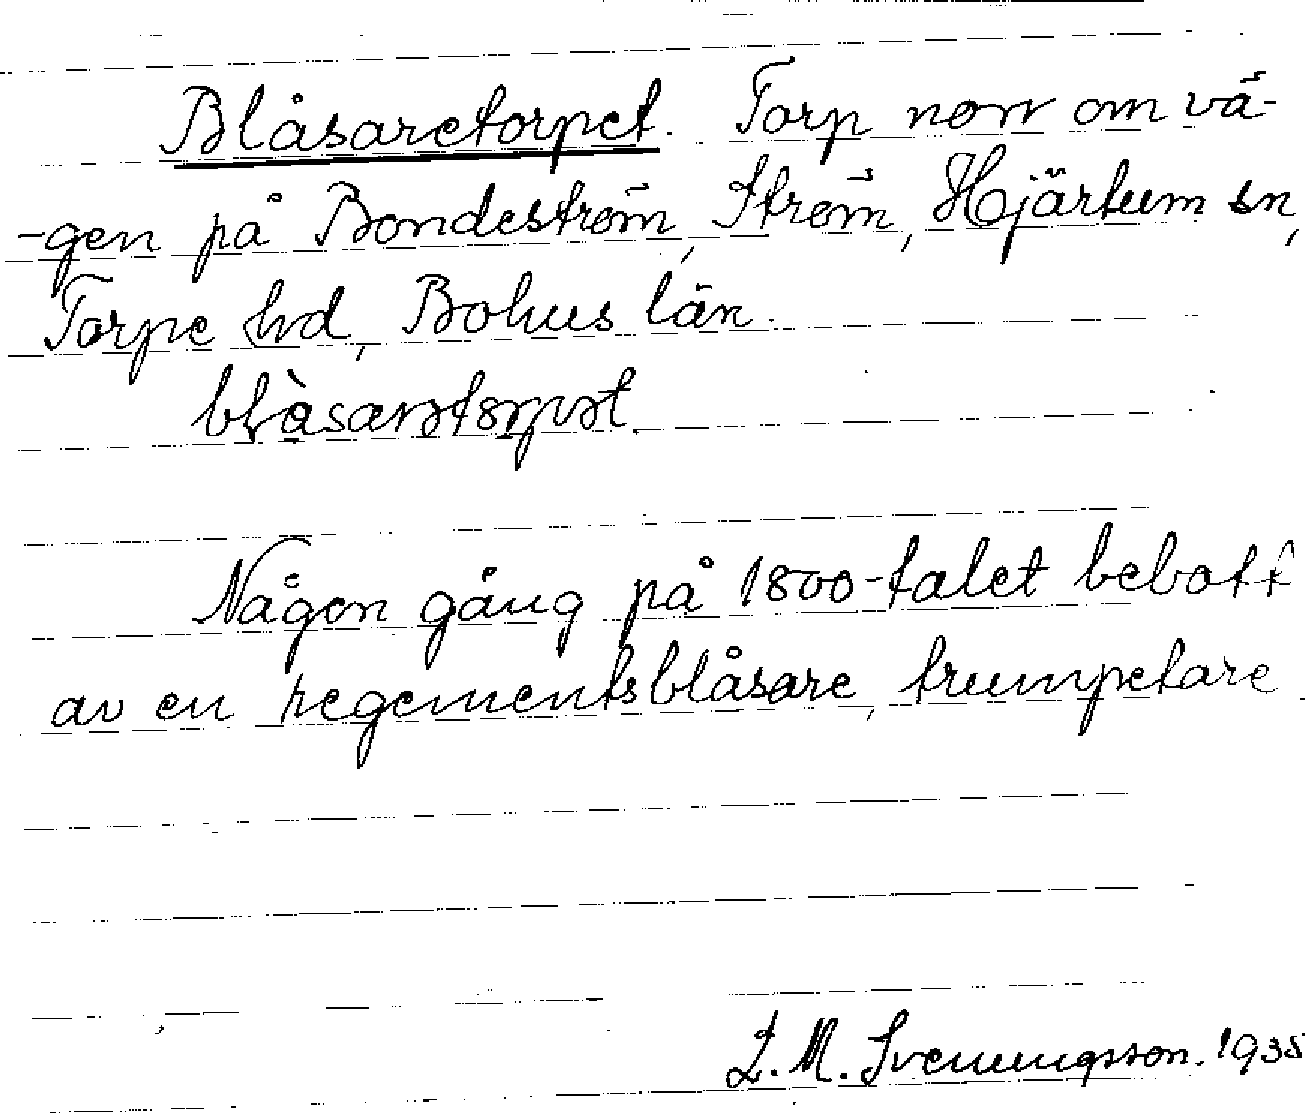 Blåsaretorpet. Torp norr om vä-
-gen på Bondeström, Ström, Hjärtum sn,
Torpe hd, Bohus län.
Någon gång på 1800-talet bebott
av en regementsblåsare, trumpetare
L. M. Svenungsson. 1935